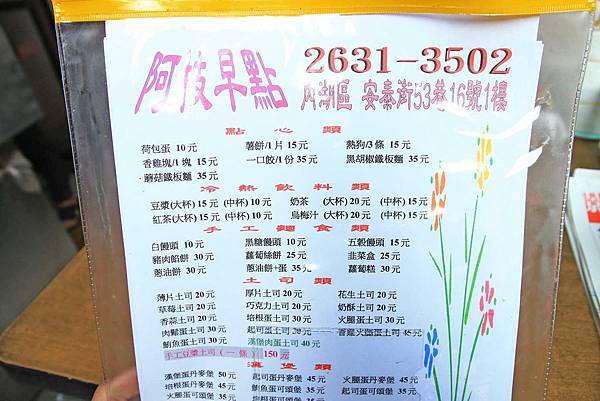 阿俊早點 2631-3502
內湖區 安泰街53巷16號1樓
點心類
荷包蛋 10元 薯餅/1片 15元 熱狗/3條 15元
香雞塊/1塊 15元 一口餃/1份 35元 黑胡椒鐵板麵 35元
蘑菇鐵板麵 35元
冷熱飲料類
豆漿(大杯) 15元 (中杯) 10元 奶茶 (大杯) 20元 (中杯) 15元
紅茶(大杯) 15元 (中杯) 10元 烏梅汁 (大杯) 20元 (中杯) 15元
手工麵食類
白饅頭 10元 黑糖饅頭 10元 五穀饅頭 15元
豬肉餡餅 30元 蘿蔔絲餅 25元 韭菜盒 25元
蔥油餅 30元 蔥油餅+蛋 35元 蘿蔔糕 30元
土司類
薄片土司 20元 厚片土司 20元 花生土司 20元
草莓土司 20元 巧克力土司 20元 奶酥土司 20元
香蒜土司 20元 培根蛋土司 30元 火腿蛋土司 30元
肉鬆蛋土司 30元 起司蛋土司 30元 香雞火蛋土司 45元
鮪魚蛋土司 30元 漢堡肉蛋土司 40元
手工豆漿土司 ( 一條 ) 150元
漢堡類
漢堡蛋丹麥堡 50元 起司蛋丹麥堡 45元 火腿蛋丹麥堡 45元
培根蛋丹麥堡 45元 鮪魚蛋可頌堡 35元 起司蛋可頌堡 35元
火腿蛋可頌堡 35元 培根蛋可頌堡 35元